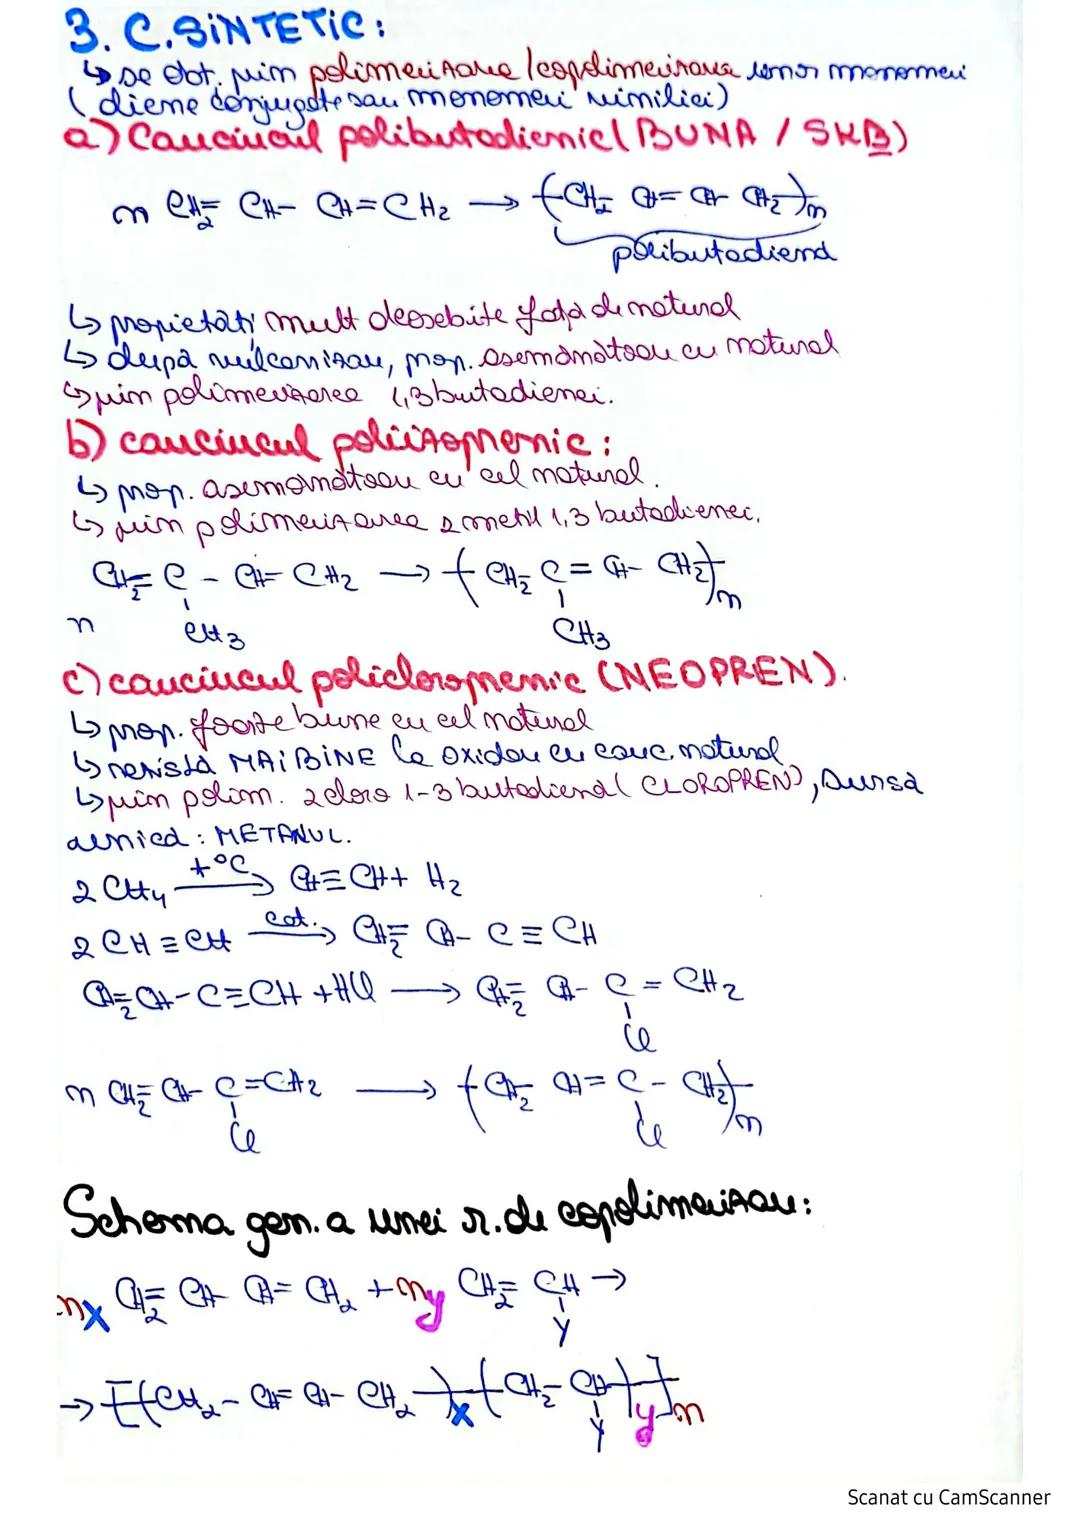 3. C.SINTETIC:
↳ se obt. prin polimerizarea /copolimerizarea unor monomeri
(diene conjugate sau monomeri vinilici)
a) Cauciucul polibutadienic (BUNA / SKB)
n CH₂= CH- CH=CH₂ → -(CH₂- CH= CH- CH₂)-n
polibutadienă
↳ proprietăți mult deosebite față de natural
↳ după vulcanizare, prop. asemănătoare cu natural
↳ prin polimerizarea 1,3 butadienei.
b) cauciucul poliizoprenic:
↳ prop. asemănătoare cu cel natural.
↳ prin polimerizarea 2 metil 1,3 butadienei.
CH₂= C - CH= CH₂ → -(CH₂- C = CH- CH₂)-n
n CH₃ CH₃
c) cauciucul policloroprenic (NEOPREN).
↳ prop. foarte bune cu cel natural
↳ rezistă MAI BINE la oxidare cu cauc. natural
↳ prin polim. 2 cloro 1-3 butadienă (CLOROPREN), sursa
unică: METANUL.
2 CH₄ —t°C→ CH≡CH+ H₂
2 CH≡CH —cat.→ CH₂= CH- C≡CH
CH₂=CH-C≡CH +HCl → CH₂= CH- C = CH₂
Cl
n CH₂= CH- C=CH₂ → -(CH₂- CH= C - CH₂)-n
Cl Cl
Schema gen. a unei r. de copolimerizare:
nx CH₂= CH- CH= CH₂ + ny CH₂= CH →
Y
→ -[-(CH₂- CH= CH- CH₂)-x-(CH₂- CH)-y]-n
Y
Scanat cu CamScanner